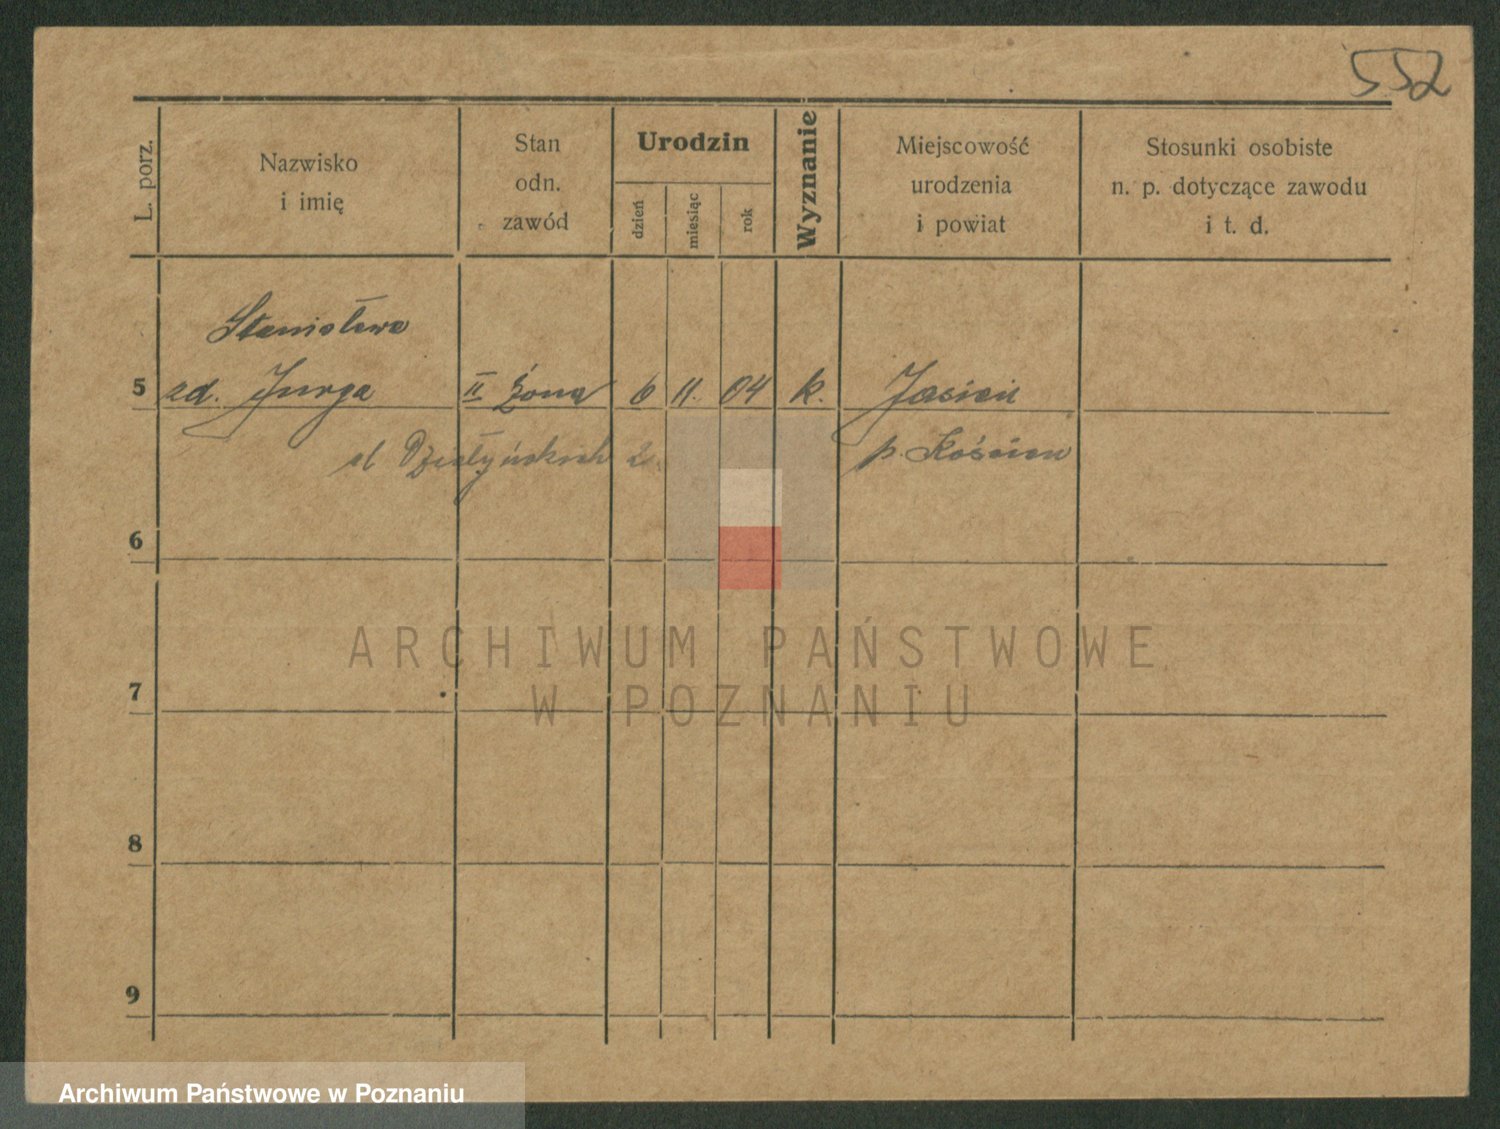 552
L. porz.
Nazwisko
i imię
Stan
odn.
zawód
Urodzin
dzień
miesiąc
rok
Wyznanie
Miejscowość
urodzenia
i powiat
Stosunki osobiste
n. p. dotyczące zawodu
i t. d.
Stanisława
5 zd. Jurga II żona 6 11. 04 k. Jasień
Działyńskich 2 p. Kościan
6
7
8
9
ARCHIWUM PAŃSTWOWE
W POZNANIU
Archiwum Państwowe w Poznaniu